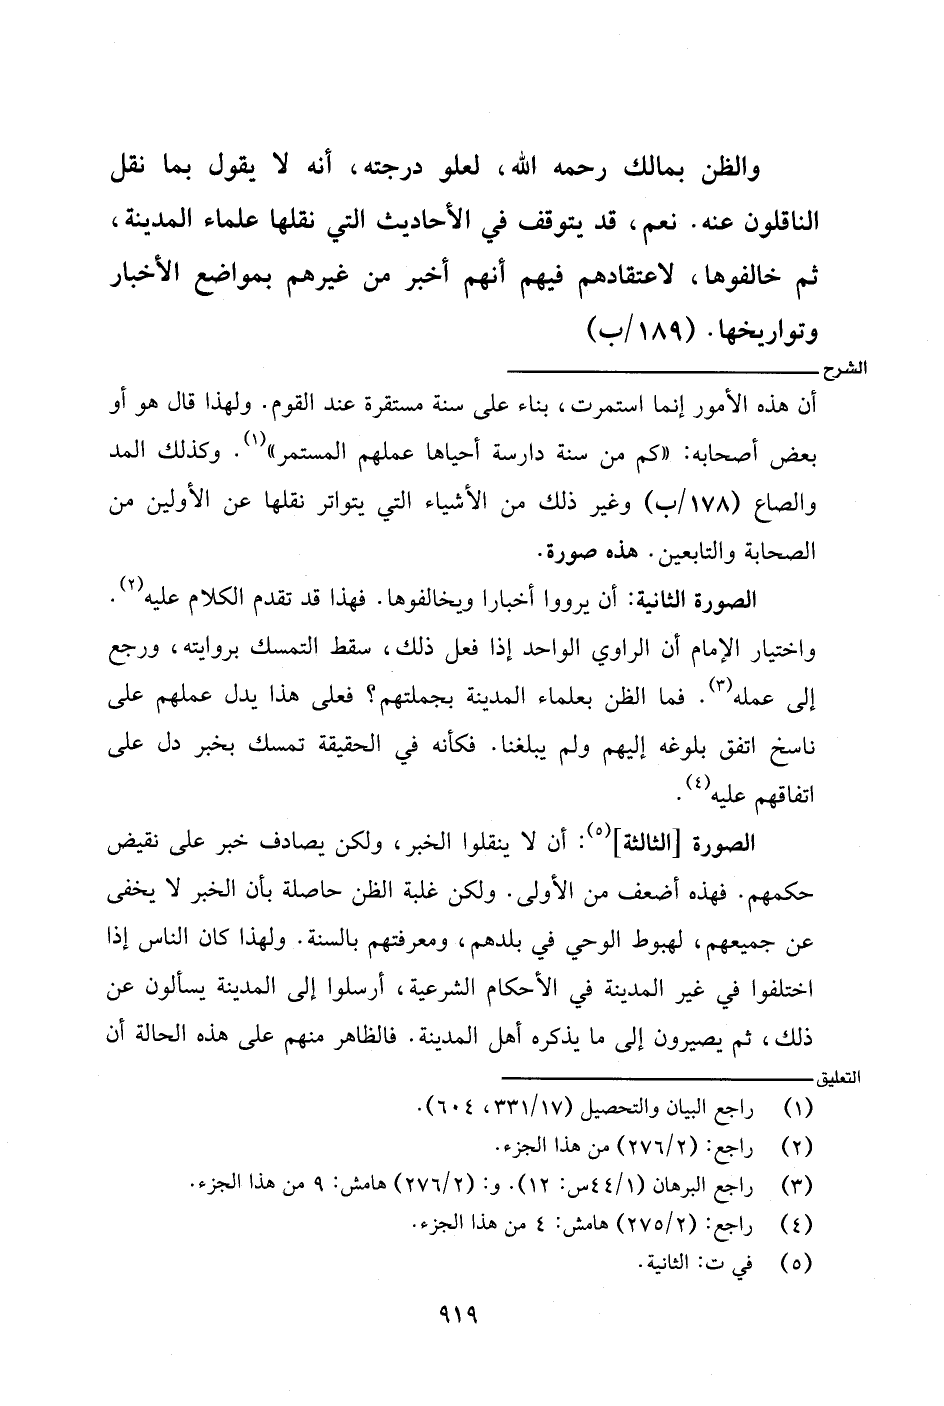 والظن بمالك رحمه الله، لعلو درجته، أنه لا يقول بما نقل
الناقلون عنه. نعم، قد يتوقف في الأحاديث التي نقلها علماء المدينة،
ثم خالفوها، لاعتقادهم فيهم أنهم أخبر من غيرهم بمواضع الأخبار
وتواريخها. (١٨٩/ب)
الشرح
أن هذه الأمور إنما استمرت، بناء على سنة مستقرة عند القوم. ولهذا قال هو أو
بعض أصحابه: «كم من سنة دارسة أحياها عملهم المستمر»(١). وكذلك المد
والصاع (١٧٨/ب) وغير ذلك من الأشياء التي يتواتر نقلها عن الأولين من
الصحابة والتابعين. هذه صورة.
الصورة الثانية: أن يرووا أخبارا ويخالفوها. فهذا قد تقدم الكلام عليه(٢).
واختيار الإمام أن الراوي الواحد إذا فعل ذلك، سقط التمسك بروايته، ورجع
إلى عمله(٣). فما الظن بعلماء المدينة بجملتهم؟ فعلى هذا يدل عملهم على
ناسخ اتفق بلوغه إليهم ولم يبلغنا. فكأنه في الحقيقة تمسك بخبر دل على
اتفاقهم عليه(٤).
الصورة [الثالثة](٥): أن لا ينقلوا الخبر، ولكن يصادف خبر على نقيض
حكمهم. فهذه أضعف من الأولى. ولكن غلبة الظن حاصلة بأن الخبر لا يخفى
عن جميعهم، لهبوط الوحي في بلدهم، ومعرفتهم بالسنة. ولهذا كان الناس إذا
اختلفوا في غير المدينة في الأحكام الشرعية، أرسلوا إلى المدينة يسألون عن
ذلك، ثم يصيرون إلى ما يذكره أهل المدينة. فالظاهر منهم على هذه الحالة أن
التعليق
(١) راجع البيان والتحصيل (٣٣١/١٧، ٦٠٤).
(٢) راجع: (٢٧٦/٢) من هذا الجزء.
(٣) راجع البرهان (٤٤/١س: ١٢). و: (٢٧٦/٢) هامش: ٩ من هذا الجزء.
(٤) راجع: (٢٧٥/٢) هامش: ٤ من هذا الجزء.
(٥) في ت: الثانية.
٩١٩